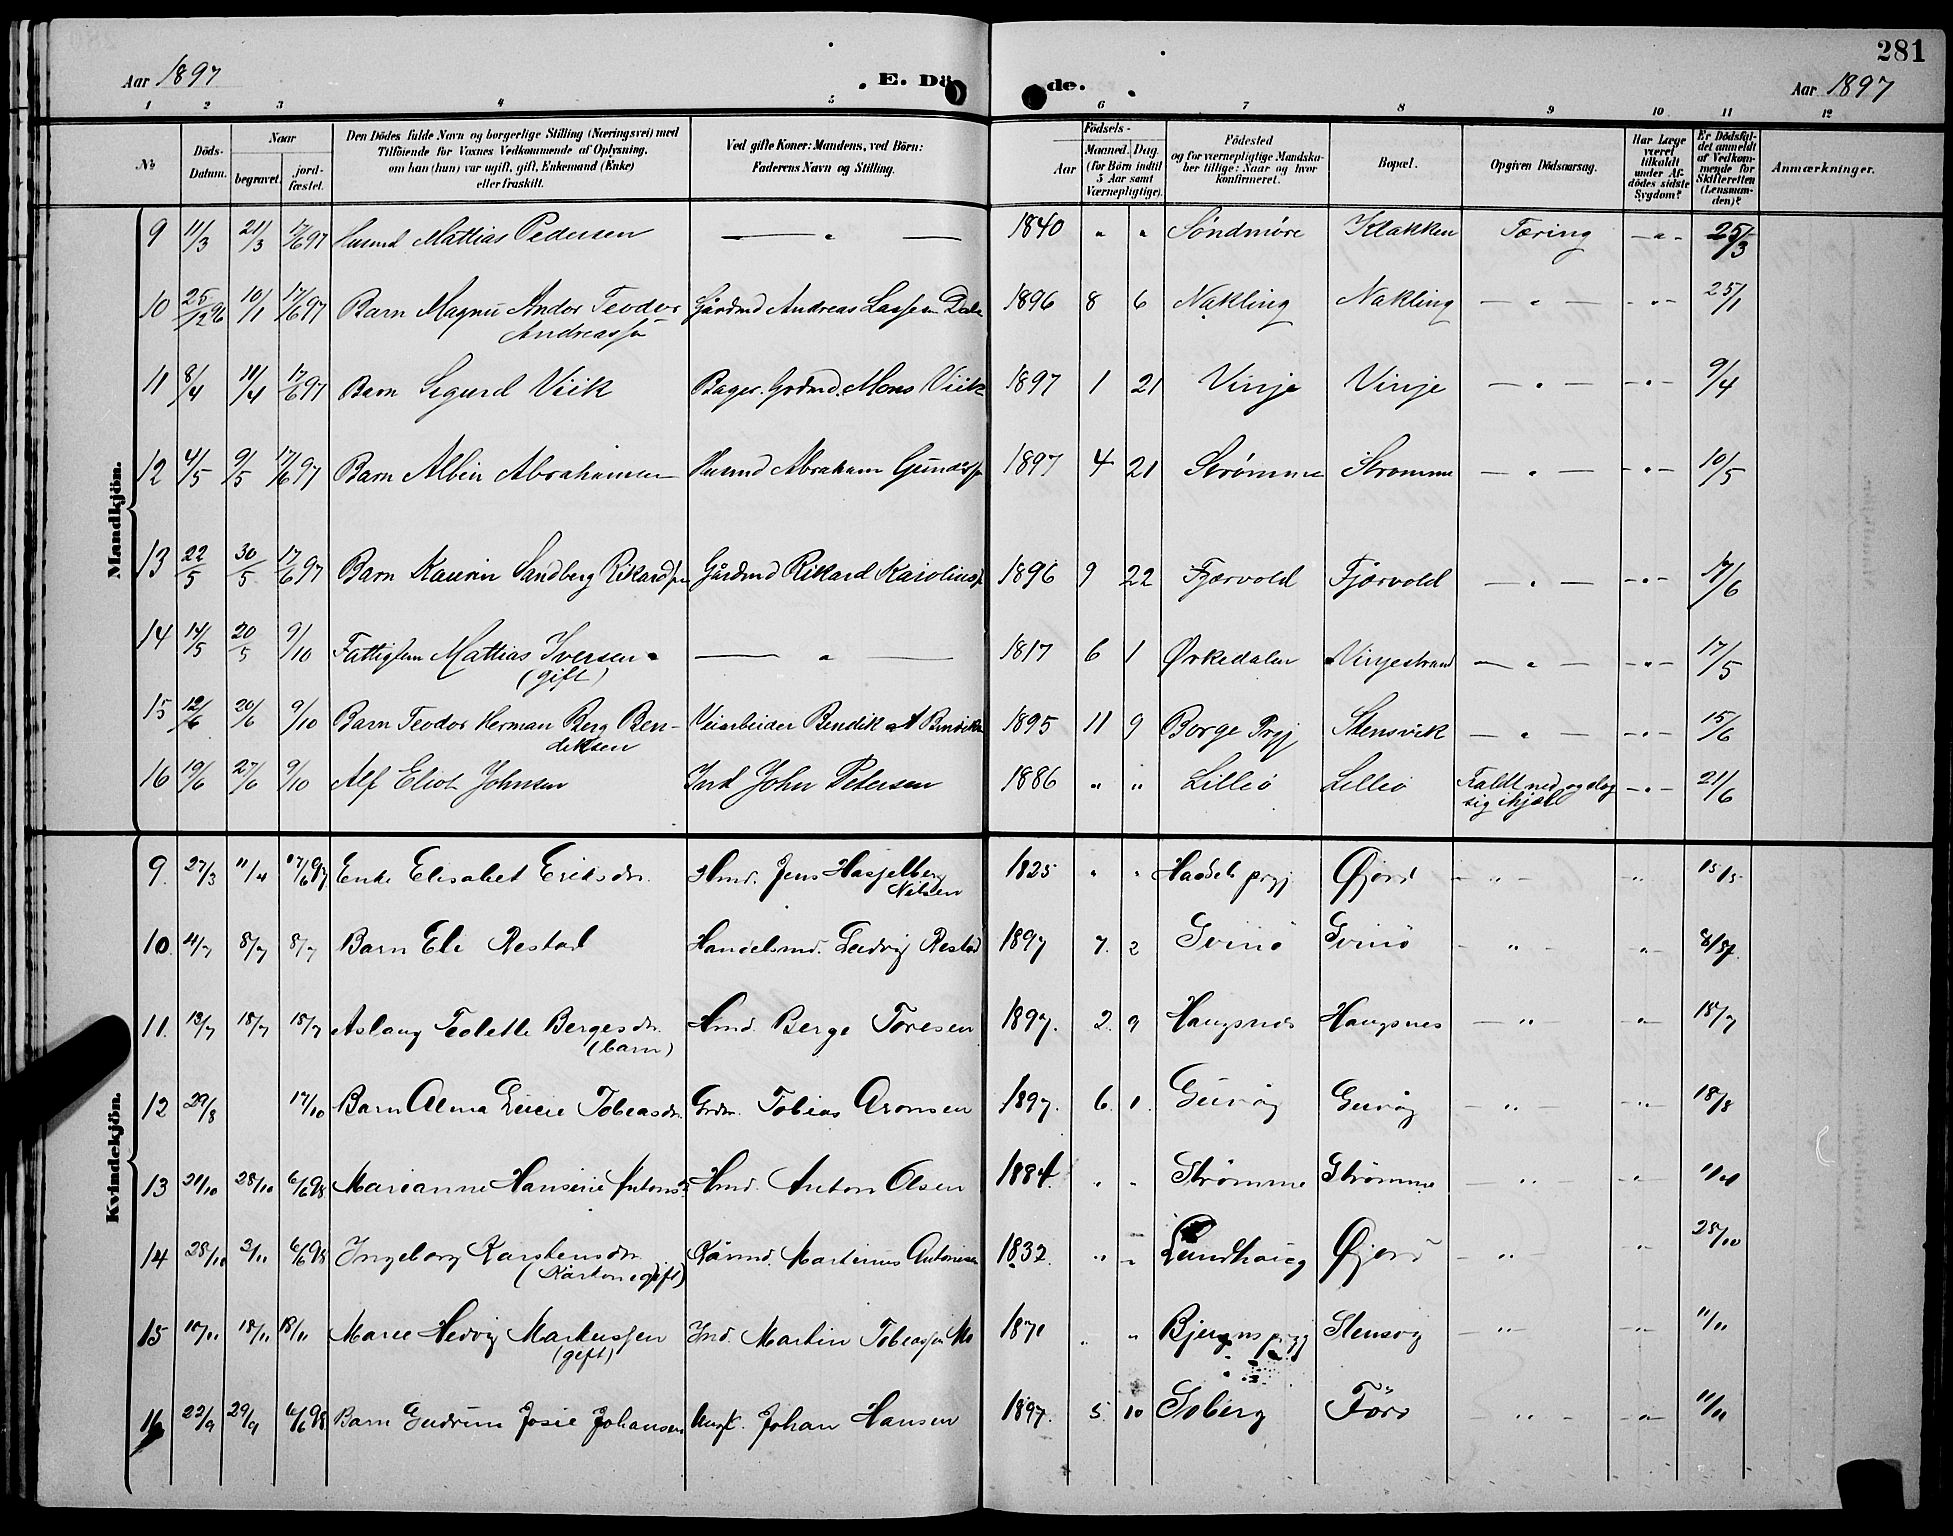 281
Aar 1897
E. Dö de.
Aar 1897
1 2 3 4 5 6 7 8 9 10 11 12
No.
Döds-Datum.
Naar
begravet.
jord-fæstet.
Den Dödes fulde Navn og borgerlige Stilling (Næringsvei) med
Tilföiende for Voxnes Vedkommende af Oplysning,
om han (hun) var ugift, gift, Enkemand (Enke)
eller fraskilt.
Ved gifte Koner: Mandens, ved Börn:
Faderens Navn og Stilling.
Födsels-
Aar
Maaned. Dag
(for Börn indtil
5 Aar samt
Værnepligtige).
Födested
og for værnepligtige Mandska-
ber tillige: Naar og hvor
konfirmeret.
Bopæl.
Opgiven Dödsaarsag.
Har Læge
været
tilkaldt
under Af-
dödes sidste
Sygdom?
Er Dödsfal-
det anmeldt
af Vedkom-
mende for
Skifteretten
(Lensman-
den)?
Anmærkninger.
Mandkjön.
9 11/3 21/3 17/6 97 Husmd Mattias Pedersen — " — 1840 " " Søndmøre Klakken Tæring — " — 25/3
10 25/12 96 10/1 17/6 97 Barn Magnus Andor Teodor Gårdmd Andreas Lassen 1896 8 6 Nakling Nakling — " — — " — 25/1
Andreassen
11 8/4 11/4 17/6 97 Barn Sigurd Viik Bager. Grdmd. Mons Viik 1897 1 21 Vinje Vinje — " — — " — 9/4
12 4/5 9/5 17/6 97 Barn Albin Abrahamsen Husmd Abraham 1897 4 21 Strømme Strømme — " — — " — 10/5
13 22/5 30/5 17/6 97 Barn Kaurin Sandberg Rikardsen Gårdmd Rikard Karolius 1896 9 22 Fjærvold Fjærvold — " — — " — 17/6
14 14/5 20/5 9/10 Fattiglem Mattias Iversen — " — 1817 6 1 Ørkedalen Vinjestrand — " — — " — 17/5
(gift)
15 12/6 20/6 9/10 Barn Teodor Herman Berg Ben- Veiarbeider Bendik 1895 11 9 Borge Prgj Stensvik — " — — " — 15/6
diksen
16 19/6 27/6 9/10 Alf Eliot Johnsen Ind John Petersen 1886 " " Lilleø Lilleø Faldt ned og slog — " — 21/6
sig ihjæl
Kvindekjön.
9. 27/3 11/4 17/6 97 Enke Elisabet Eriksdr. Hmd. Jens Hasjelberg 1825 " " Hadsels prgj Øjord — " — " 15/5
Nilsen
10. 4/7 8/7 8/7 Barn Eli Restad Handelsmd. Ludvig Restad 1897 7. 2 Svinø Svinø — " — "
11. 13/7 18/7 18/7 Aslaug Teolette Bergesdr. Hmd. Berge Toresen 1897. 2. 9 Haugsnes Haugsnes — " — " 18/7
(barn)
12 29/8 17/10 Barn Alma Lucie Tobiasdr. Grdm. Tobias Aronsen 1897. 6. 1. — " — " 18/8
13 21/10 28/10 6/6 98 Marianne Hansine Antonsd. Hmd. Anton Olsen 1884. " " Strømme Strømme " "
14 28/10 2/11 6/6 98 Ingeborg Karstensdr. Kårmd. Martinus Antonisen 1832. " " Sandhaug Øjord — " — " 25/10
(Kårkone gift)
15 10/11 18/11 18/11 Marie Hedvig Markussen Ind. Martin Tobiassen Mo 1871 " " prgj Stensvig — " — " 11/11
(gift)
16 22/9 29/9 6/6 98 Barn Gudrun Josie Johansen Ungk. Johan Hansen 1897. 5. 10 Soberg Förö " — " 11/11